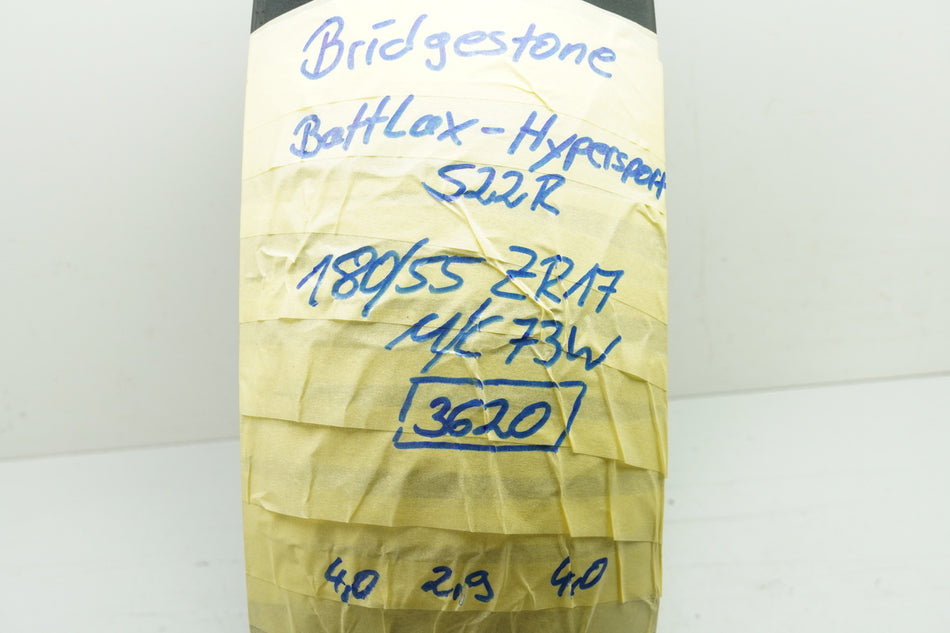 Bridgestone
Battlax-Hypersport
S22R
180/55 ZR17
M/C 73W
3620
4,0 2,9 4,0